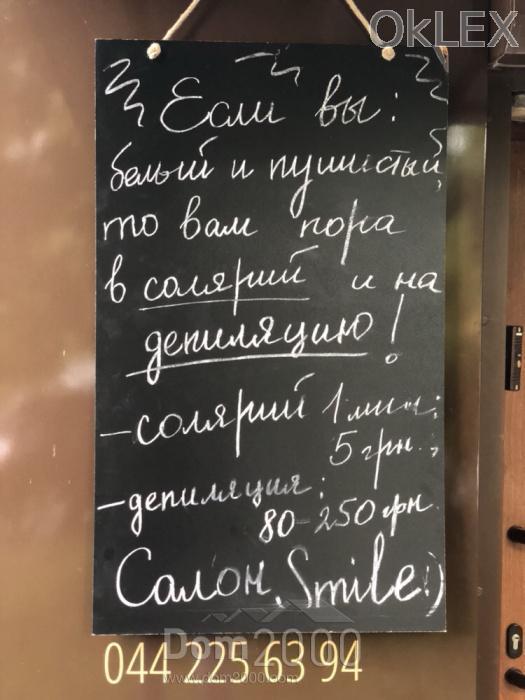 OkLEX
Если вы:
белый и пушистый,
то вам пора
в солярий и на
депиляцию!
–солярий 1 мин:
5 грн.,
–депиляция:
80-250 грн.
Салон „Smile:)
Dom2000
www.dom2000.com
044 225 63 94